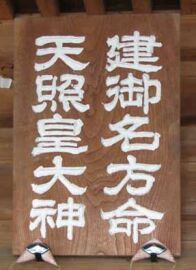 建御名方命
天照皇大神